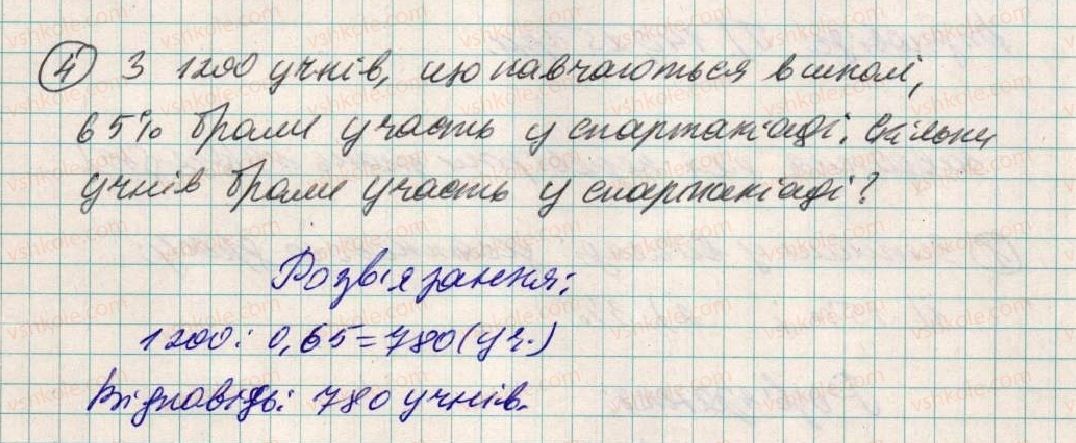 ④ З 1200 учнів, що навчаються в школі,
65% брали участь у спартакіаді. Скільки
учнів брали участь у спартакіаді?
Розв'язання:
1200 : 0,65 = 780 (уч.)
Відповідь: 780 учнів.